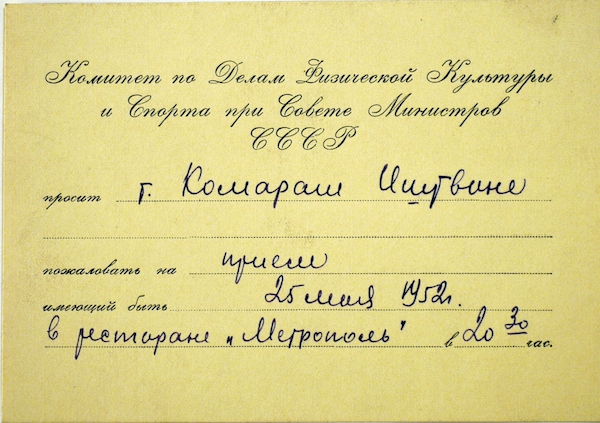 Комитет по Делам Физической Культуры
и Спорта при Совете Министров
СССР
просит г. Комараш Иштване
пожаловать на прием
имеющий быть 25 мая 1952г.
в ресторане „Метрополь" в 20 30 час.